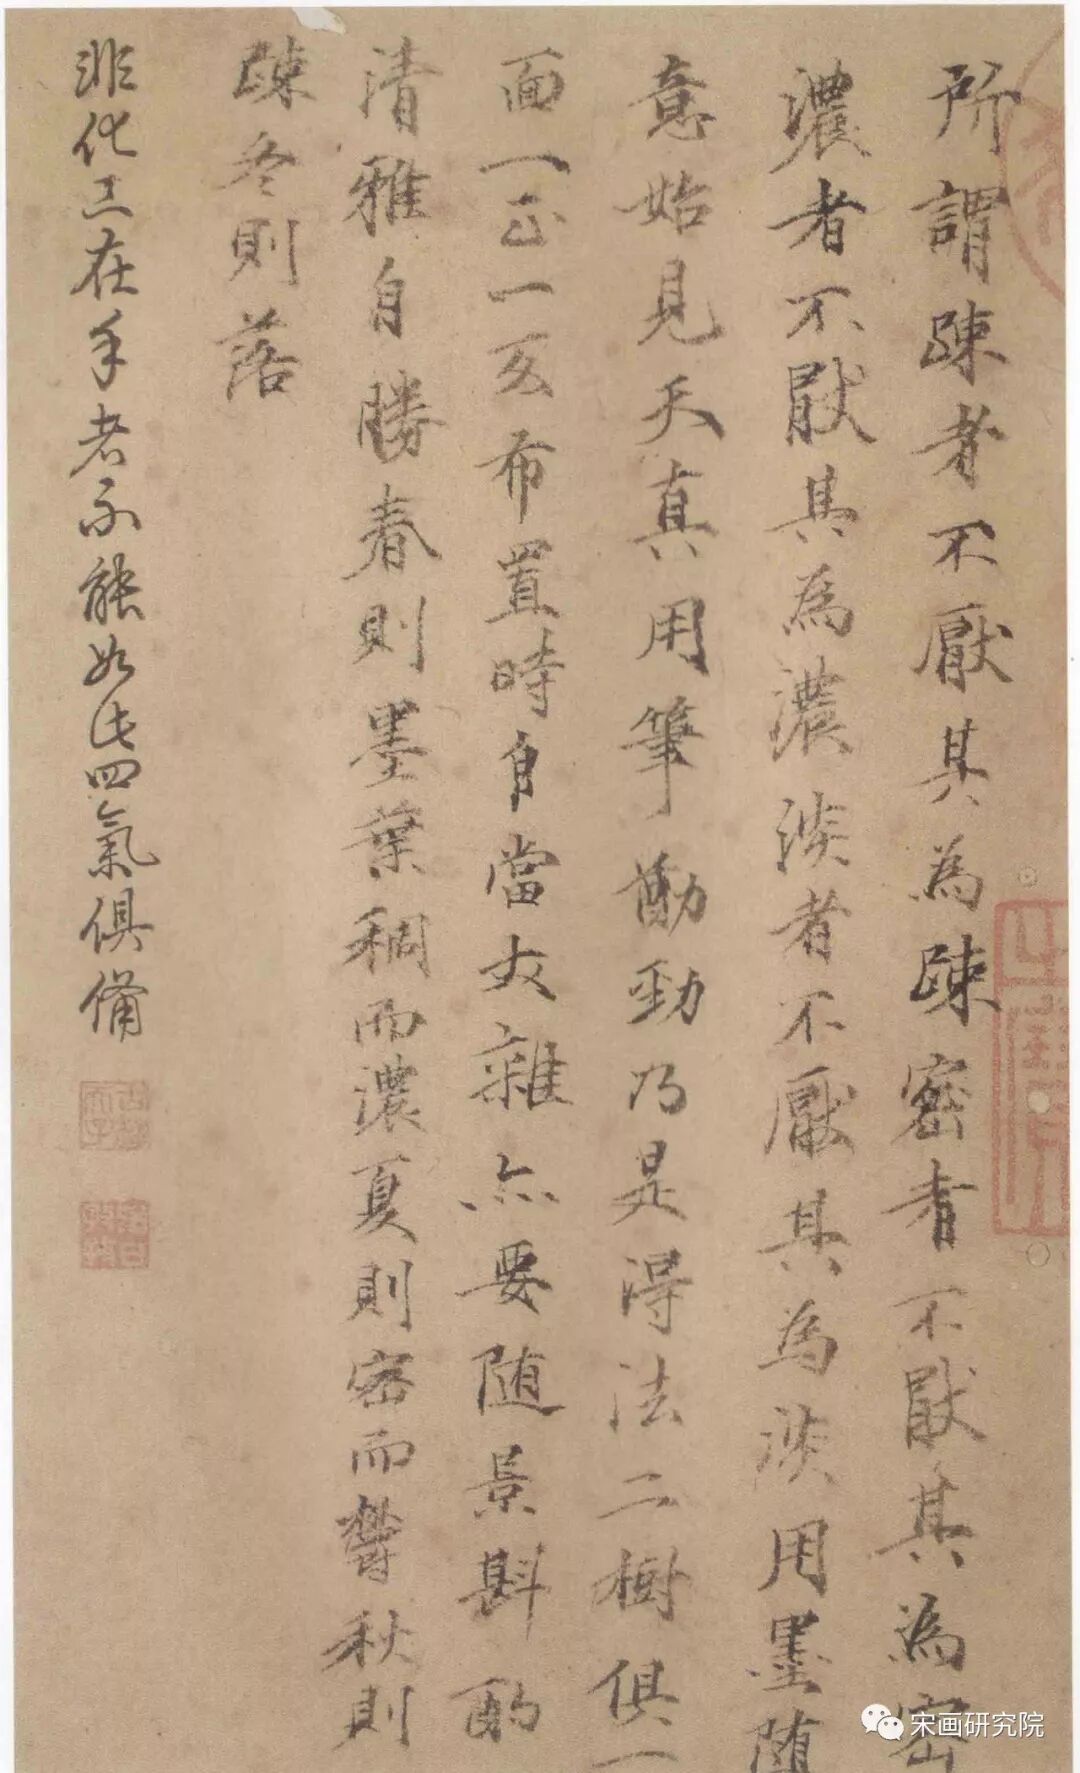 所謂踈者不厭其為踈密者不猒其為密
濃者不猒其為濃淡者不厭其為淡用墨随
意始見天真用筆勁乃是得法二樹俱一
面一正一反布置時自當雜亦要随景斟酌
清雅自勝春則墨葉稠而濃夏則密而鬱秋則
踈冬則落
非化工在手者不能如此四氣俱備
宋画研究院